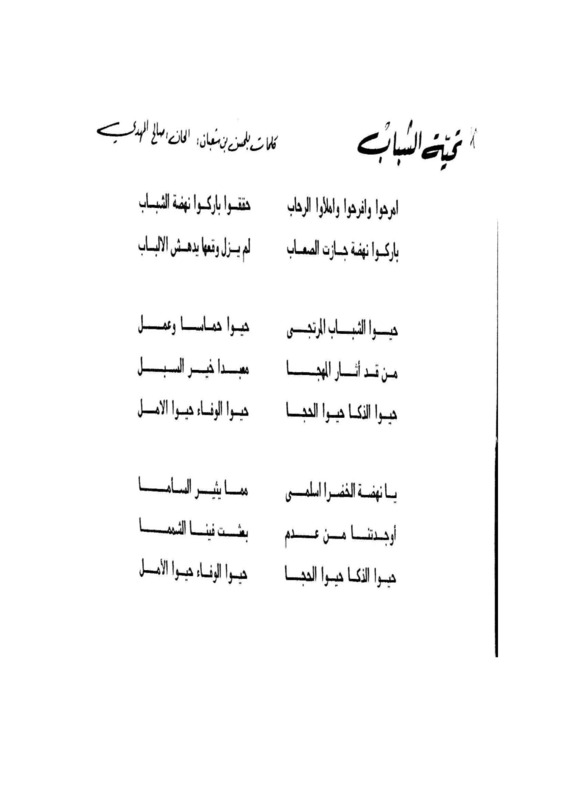 تحيّة الشباب
كلمات بلحسن بن شعبان، الحان، صالح المهدي
امرحوا وافرحوا واملأوا الرحاب حققوا باركوا نهضة الشباب
باركوا نهضة جازت الصعاب لم يزل وقعها يدهش الالباب
حيوا الشباب المرتجى حيوا حماسا وعمل
من قد أثار المهجا معبدا خير السبل
حيوا الذكا حيوا الحجا حيوا الوفاء حيوا الامل
يا نهضة الخضرا اسلمى مما يثير السأما
أوجدتنا من عدم بعثت فينا الشمما
حيوا الذكا حيوا الحجا حيوا الوفاء حيوا الأمل